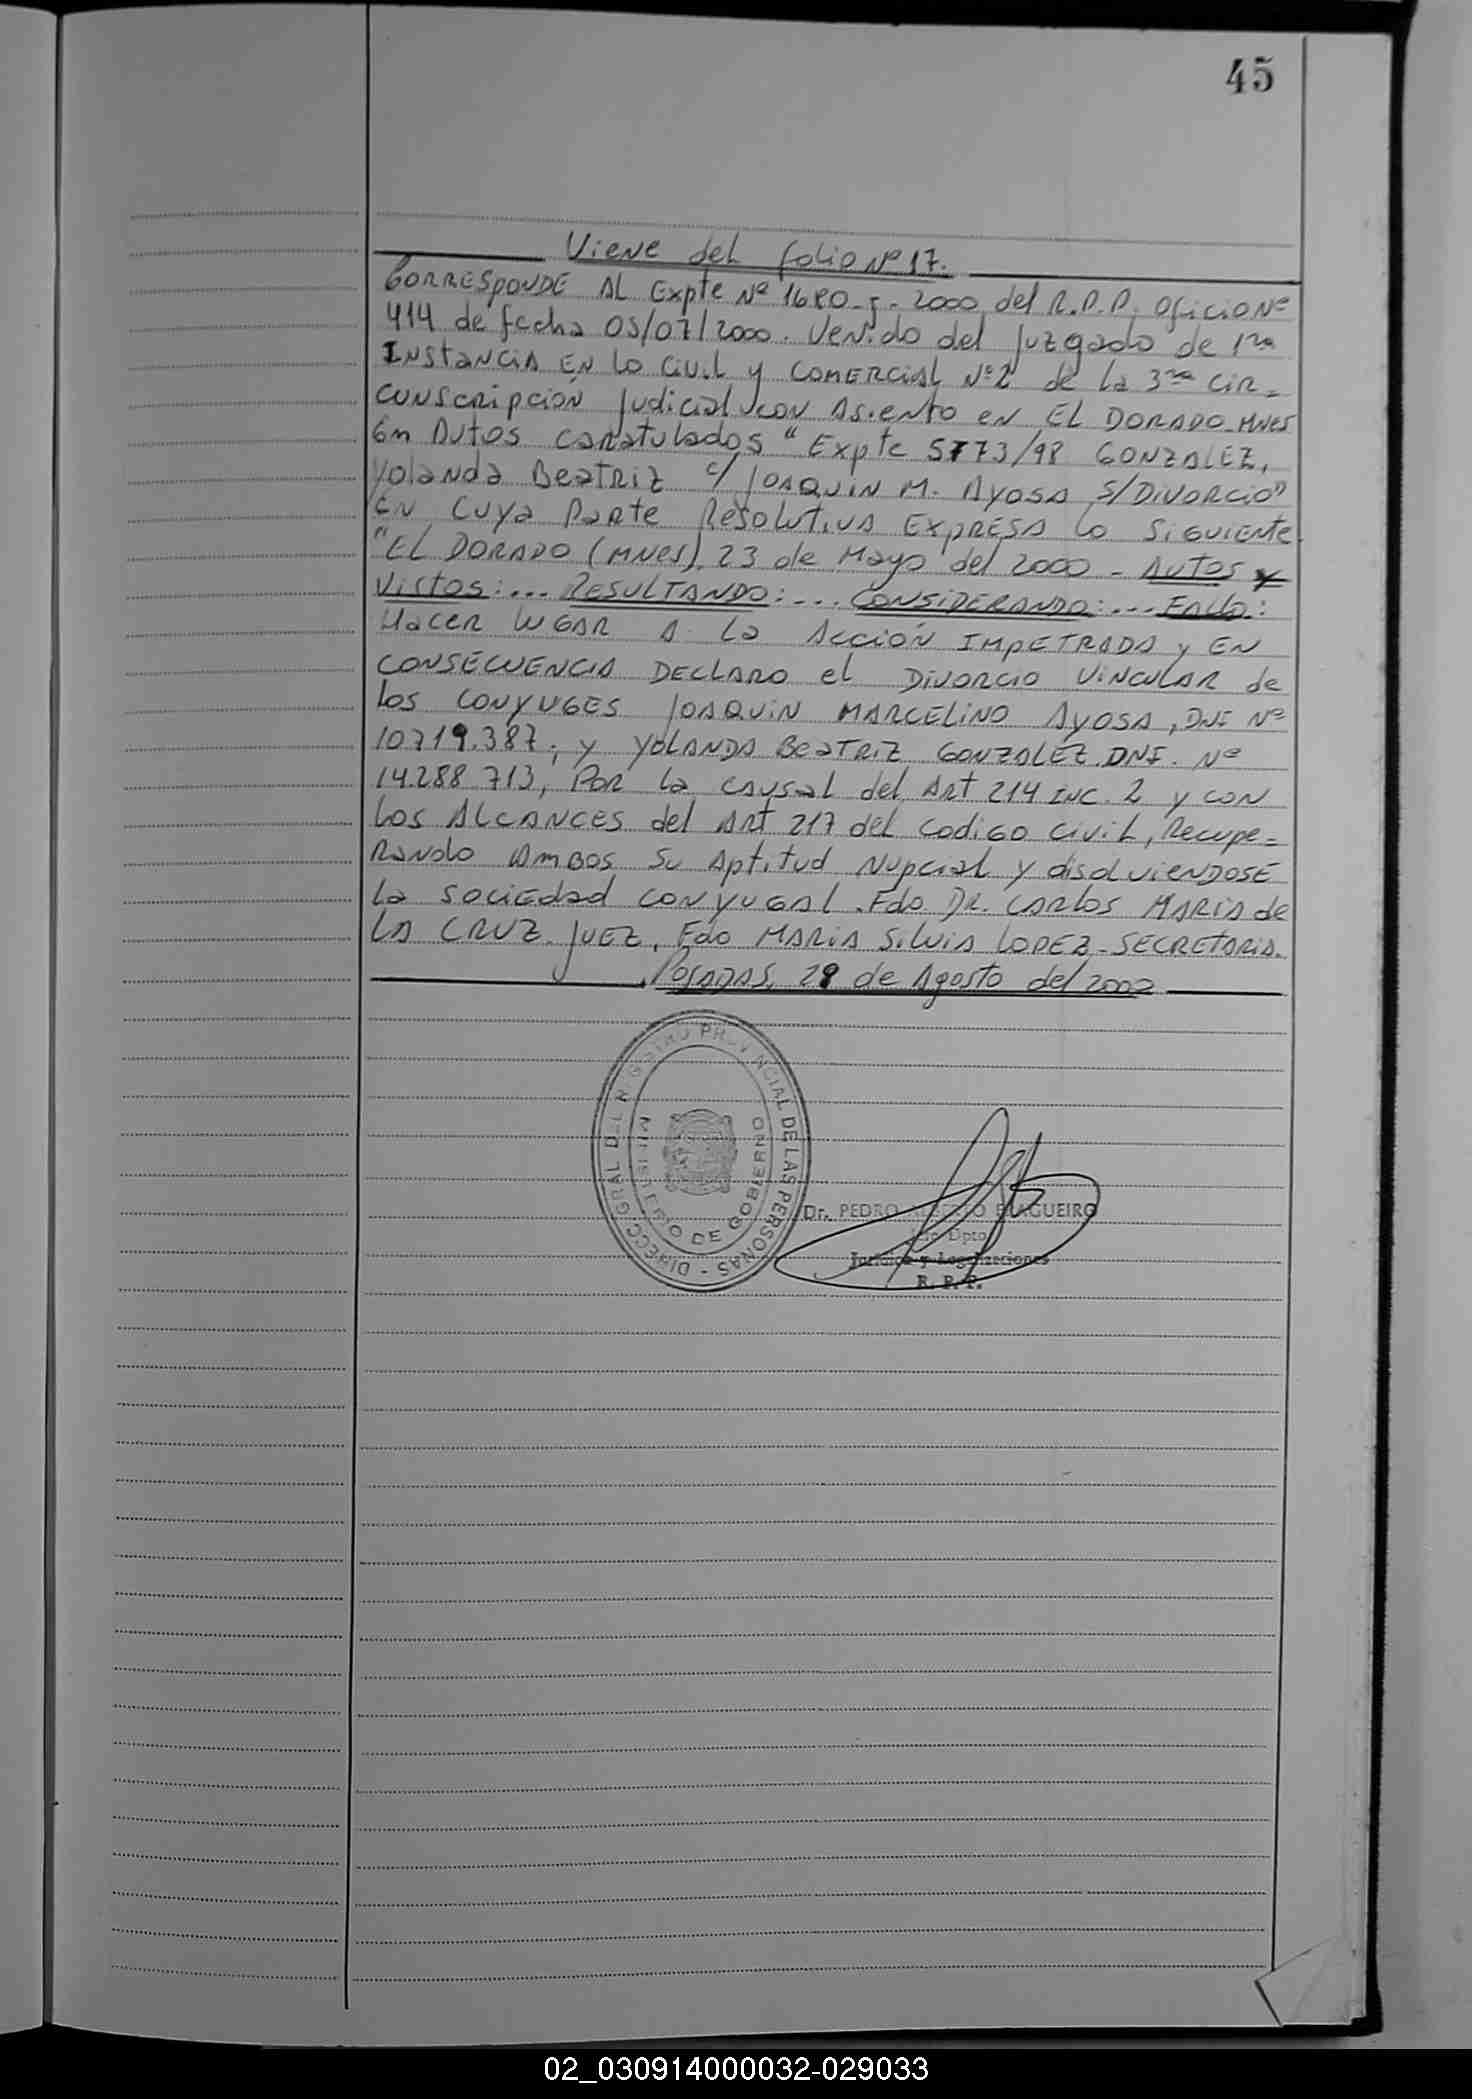 45
Viene del folio Nº 17.
CORRESPONDE AL Expte Nº 1680-J-2000 del R.P.P. Oficio Nº
414 de fecha 05/07/2000. Venido del Juzgado de 1ra
INSTANCIA EN Lo Civil y COMERCIAL Nº 2 de la 3ra CIR=
CUNSCRIPCIÓN Judicial con Asiento en EL DORADO-MNES
En AUTOS caratulados "Expte 5773/98 GONZALEZ,
Yolanda BEATRIZ c/ JOAQUIN M. AYOSA S/DIVORCIO"
EN cuya PARTE Resolutiva EXPRESA lo SIGUIENTE
"EL DORADO (MNES), 23 de Mayo del 2000 - AUTOS y
VISTOS:... RESULTANDO:-... CONSIDERANDO:... FALLO:
HACER LUGAR A LA ACCIÓN IMPETRADA y EN
CONSECUENCIA DECLARO el DIVORCIO VINCULAR de
los CONYUGES JOAQUIN MARCELINO AYOSA, DNI Nº
10.719.387; y YOLANDA BEATRIZ GONZALEZ DNI. Nº
14.288.713, POR la causal del Art 214 INC. 2 y CON
LOS ALCANCES del ART 217 del Codigo Civil, Recupe=
RANDO AMBOS Su Aptitud Nupcial y disolviENDOSE
La SOCIEDAD CONYUGAL. Fdo DR. CARLOS MARIA de
LA CRUZ. JUEZ, Fdo MARIA SILVIA LOPEZ-SECRETARIA.
POSADAS, 28 de Agosto del 2002
DIRECC. GRAL. DEL REGISTRO PROVINCIAL DE LAS PERSONAS -
MINISTERIO DE GOBIERNO
Dr. PEDRO ALBERTO
Dpto
Jurídico y Legalizaciones
R. P. P.
02_030914000032-029033